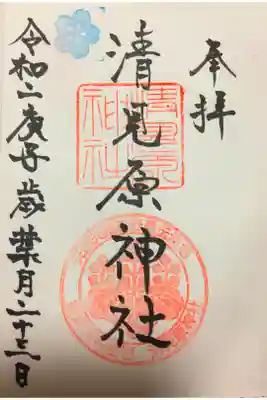 奉拝
清見原神社
清見原神社
令和二庚子歳葉月二十三日